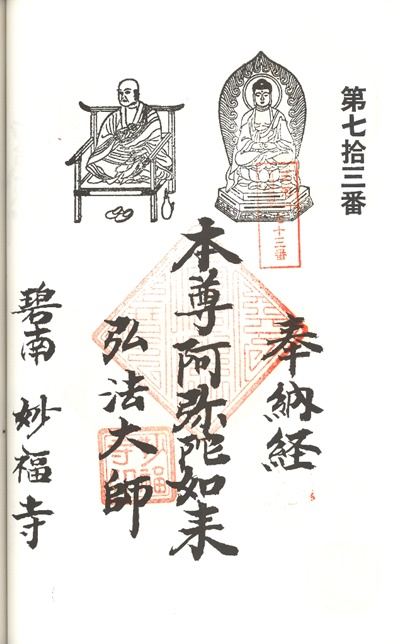 第七拾三番
奉納経
本尊阿弥陀如来
弘法大師
碧南 妙福寺
十三番